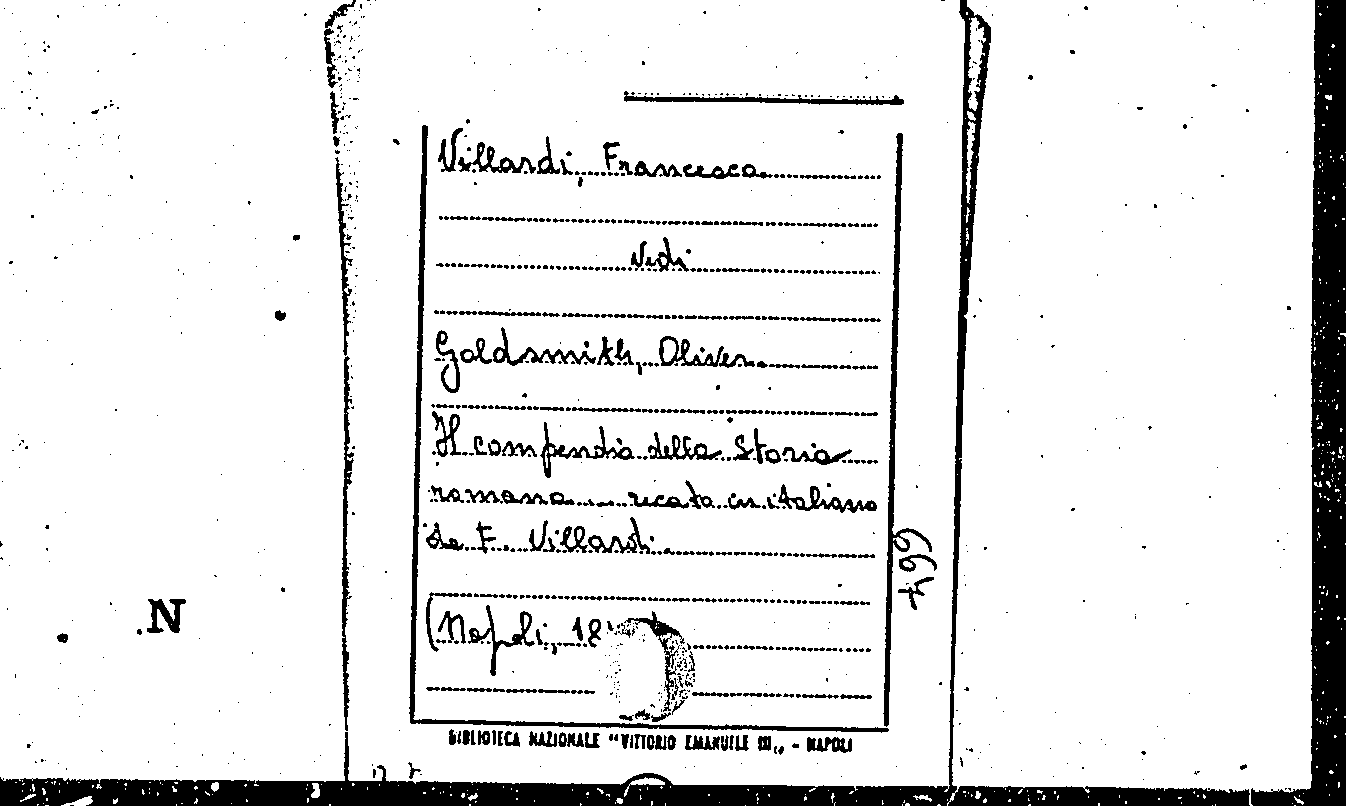 Villardi, Francesco.
Vedi
Goldsmith, Oliver.
Il compendio della Storia
romana... recata in italiano
da F. Villardi.
(Napoli, 18
664
N
BIBLIOTECA NAZIONALE "VITTORIO EMANUELE III,, - NAPOLI